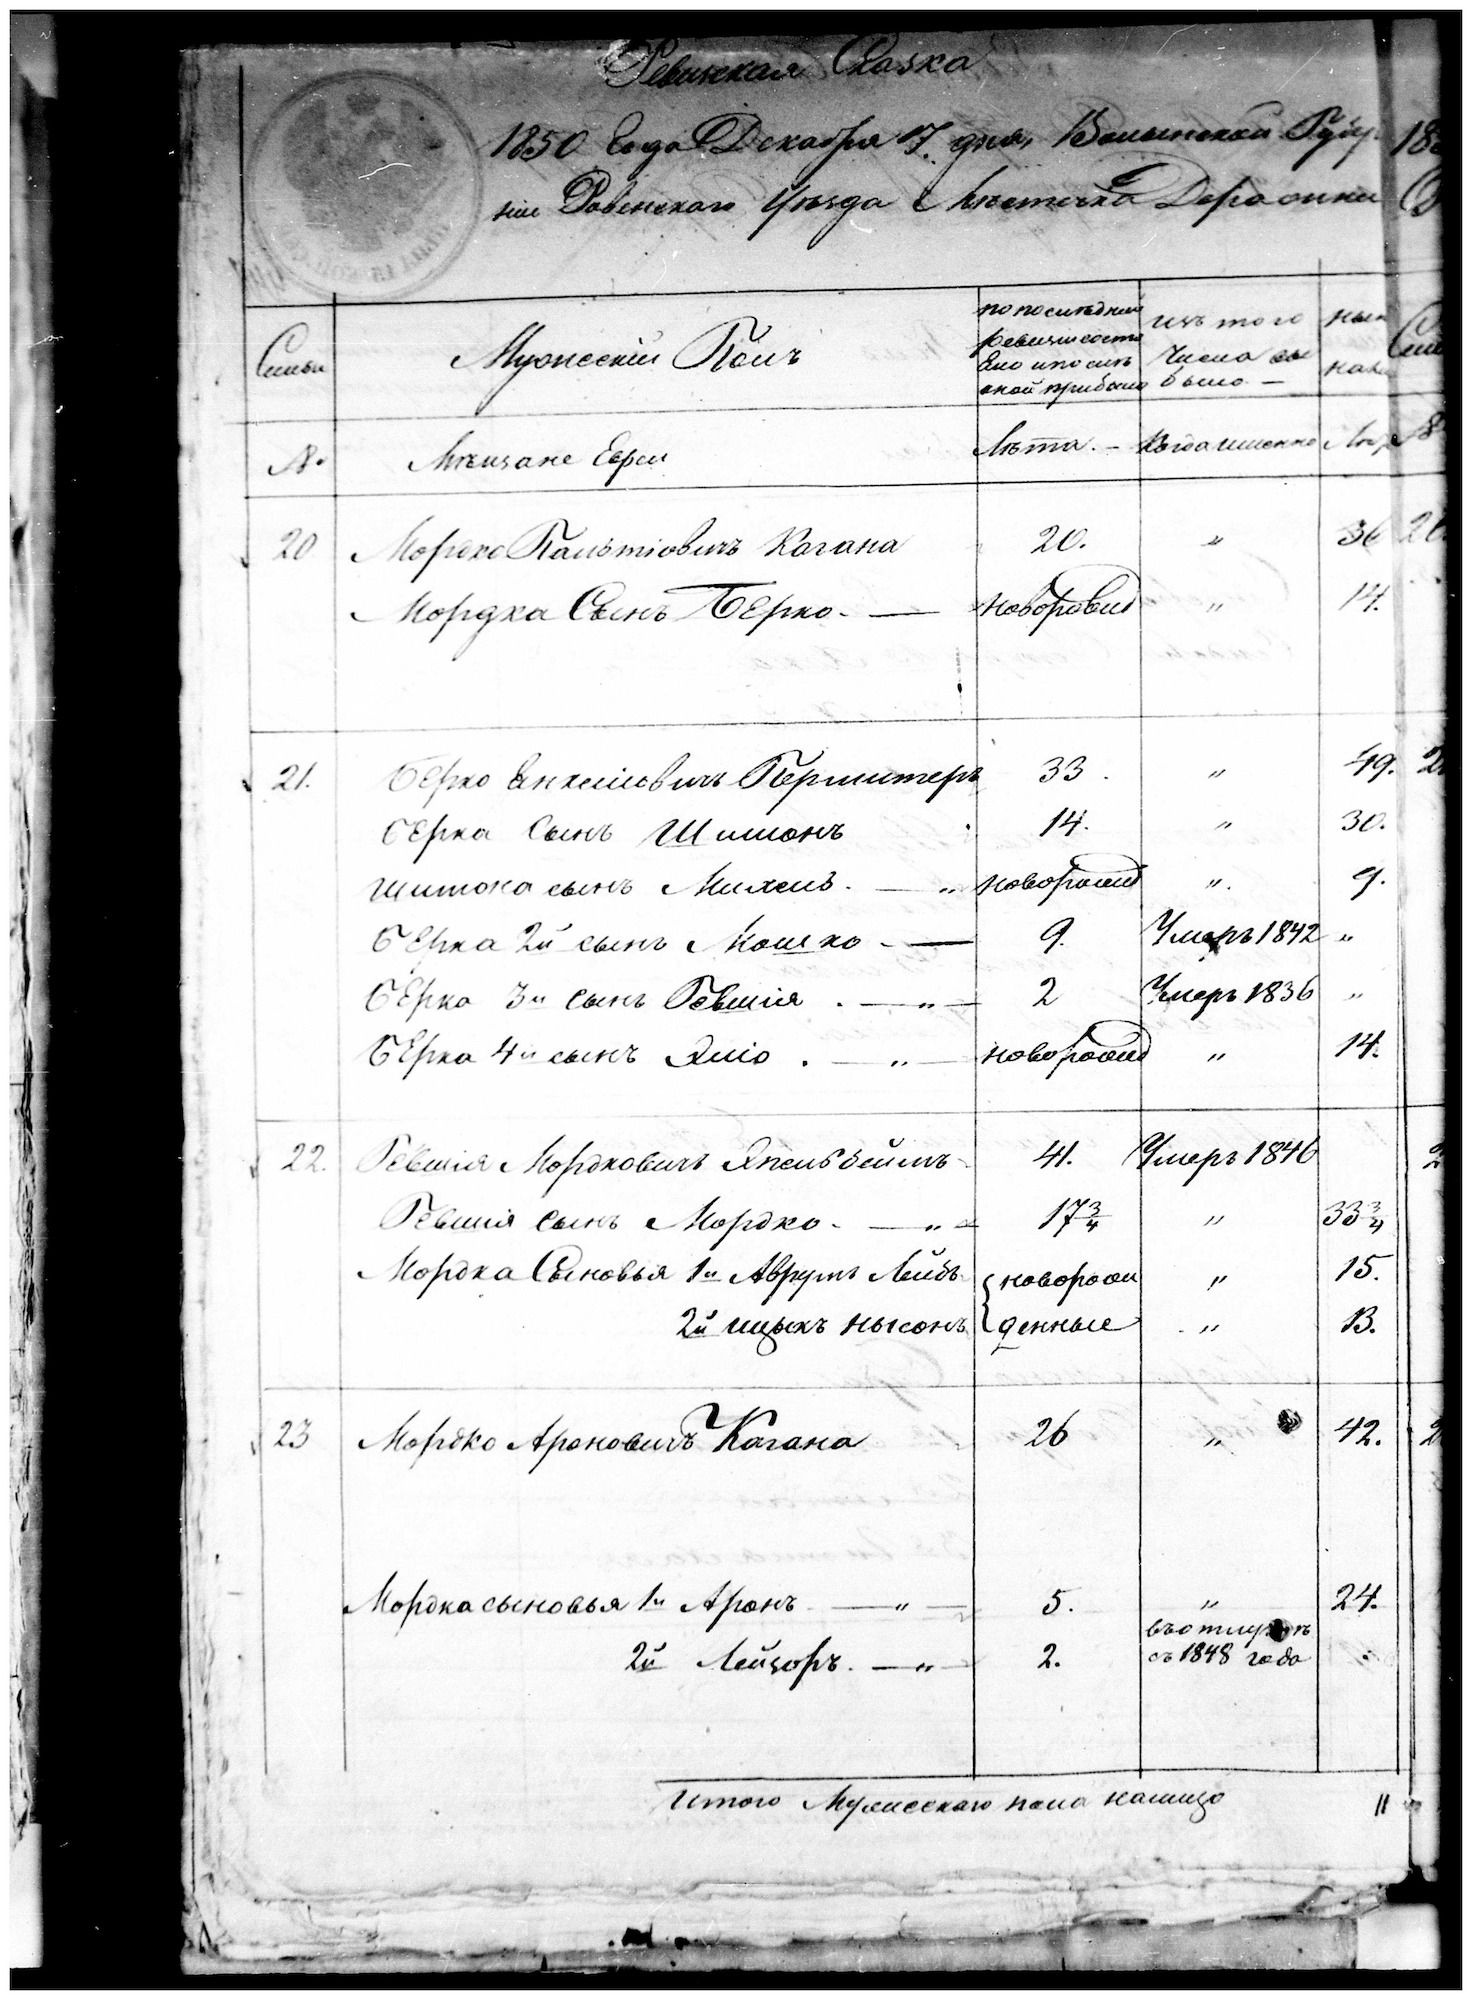 Ревижская Сказка
1850 Года Декабря 7. дня, Волынской Губер
ніи Ровенскаго Уѣзда Мѣстечка Деражни
Семьи
Мужескій Полъ
по последней
ревизіи состо
яло и после
оной прибыло
изъ того
числа вы
было —
ныне
№
Мѣщане Евреи
Лѣта. —
Когда именно
20 Мордко Пальтіовичъ Кагана 20. " 36
Мордка Сынъ Берко — новорожд " 14.
21. Берко Янкелiовичъ Перишитеръ 33. " 49.
Берка Сынъ Шимонъ 14. " 30.
Шимона сынъ Михель. — " новорожд ". 9.
Берка 2й сынъ Мошко — 9. Умеръ 1842 "
Берка 3й сынъ Гевшія. — " — 2 Умеръ 1836 "
Берка 4й сынъ Яліо. — " — новорожд " 14.
22. Гевшія Мордковичъ 41. Умеръ 1846
Гевшія сынъ Мордко — " — 17 3/4 " 33 3/4
Мордка Сыновья 1й Аврумъ Лейбъ новорож " 15.
2й ицыкъ нысонъ денные " 13.
23 Мордко Ароновичъ Кагана 26 " 42.
Мордка сыновья 1й Аронъ — " — 5. " 24.
въ отлучкѣ
2й Лейзоръ. — " — 2. съ 1848 года
Итого Мужескаго пола налицо 11